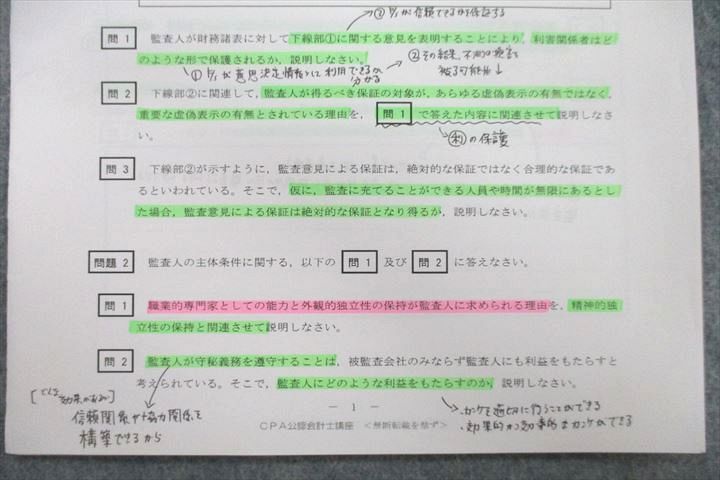 ③F/Sが信頼できるかを保証する
問1 監査人が財務諸表に対して下線部①に関する意見を表明することにより，利害関係者はど
のような形で保護されるか，説明しなさい。
②その結果、不測の損害を
被る可能性↓
①F/Sが意思決定情報として利用できるか
分かる
問2 下線部②に関連して，監査人が得るべき保証の対象が，あらゆる虚偽表示の有無ではなく，
重要な虚偽表示の有無とされている理由を，問1で答えた内容に関連させて説明しなさ
い。
㊑の保護
問3 下線部②が示すように，監査意見による保証は，絶対的な保証ではなく合理的な保証であ
るといわれている。そこで，仮に，監査に充てることができる人員や時間が無限にあるとし
た場合，監査意見による保証は絶対的な保証となり得るか，説明しなさい。
問題2 監査人の主体条件に関する，以下の問1及び問2に答えなさい。
問1 職業的専門家としての能力と外観的独立性の保持が監査人に求められる理由を，精神的独
立性の保持と関連させて説明しなさい。
問2 監査人が守秘義務を遵守することは，被監査会社のみならず監査人にも利益をもたらすと
考えられている。そこで，監査人にどのような利益をもたらすのか，説明しなさい。
信頼関係や協力関係を
構築できるから
・カンサを適切に行うことができる
・効果的かつ効率的なカンサができる
― 1 ―
CPA公認会計士講座 <無断転載を禁ず>